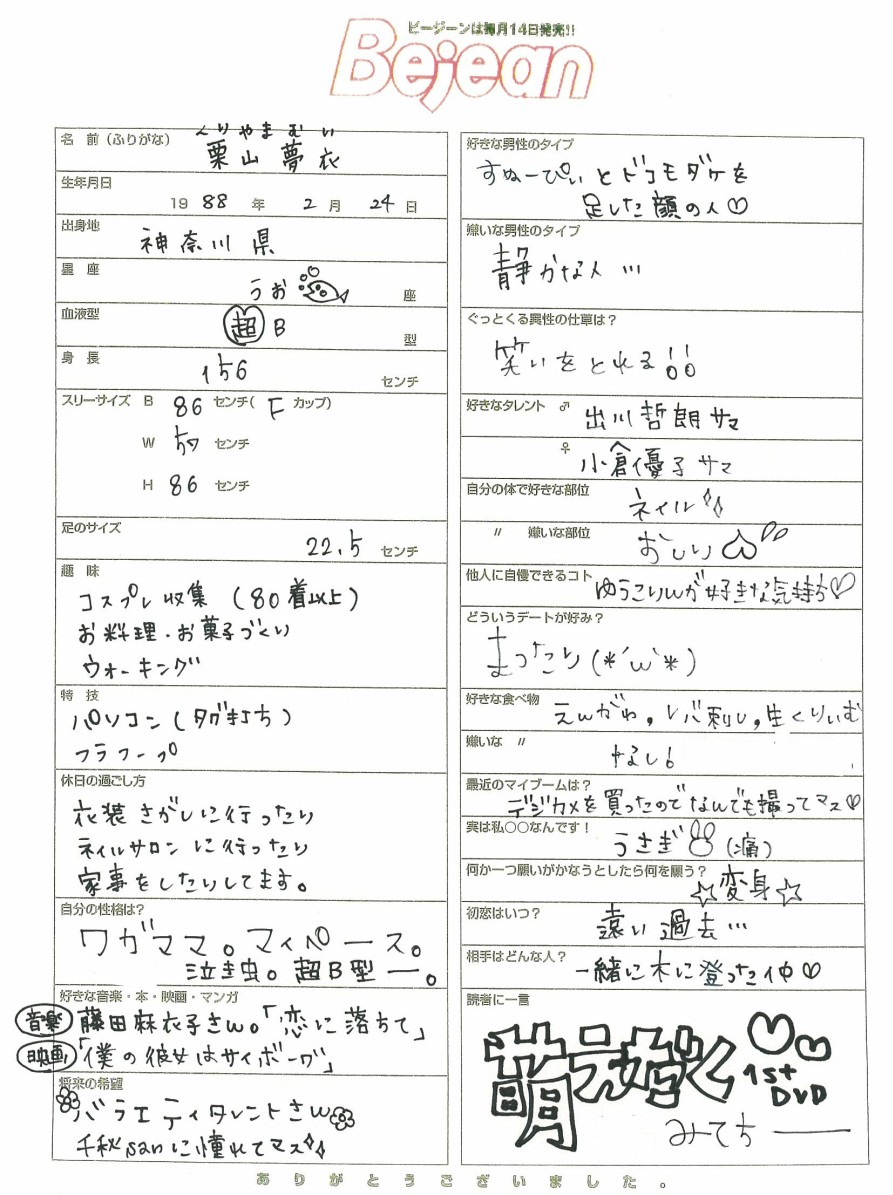 ビージーンは毎月14日発売!!
Bejean
名 前 (ふりがな) くりやまむい
栗山夢衣
生年月日
19 88 年 2 月 24 日
出身地
神奈川県
星 座
うお 座
血液型
超B 型
身 長
156 センチ
スリーサイズ B 86 センチ( F カップ)
W 57 センチ
H 86 センチ
足のサイズ
22.5 センチ
趣 味
コスプレ収集 (80着以上)
お料理・お菓子づくり
ウォーキング
特 技
パソコン (タグ打ち)
フラフープ
休日の過ごし方
衣装さがしに行ったり
ネイルサロンに行ったり
家事をしたりしてます。
自分の性格は?
ワガママ。マイペース。
泣き虫。超B型ー。
好きな音楽・本・映画・マンガ
音楽 藤田麻衣子さんの「恋に落ちて」
映画 「僕の彼女はサイボーグ」
将来の希望
バラエティタレントさん
千秋sanに憧れてマス
好きな男性のタイプ
すぬーぴぃとドコモダケを
足した顔の人♡
嫌いな男性のタイプ
静かな人…
ぐっとくる異性の仕草は?
笑いをとれる!!
好きなタレント ♂ 出川哲朗サマ
♀ 小倉優子サマ
自分の体で好きな部位
ネイル
〃 嫌いな部位
おしり
他人に自慢できるコト ゆうこりんが好きな気持ち♡
どういうデートが好み?
まったり(*´ω`*)
好きな食べ物 えんがわ,レバ刺し,生くりぃむ
嫌いな 〃
なし!
最近のマイブームは?
デジカメを買ったのでなんでも撮ってマス♡
実は私○○なんです!
うさぎ (痛)
何か一つ願いがかなうとしたら何を願う?
☆変身☆
初恋はいつ?
遠い過去…
相手はどんな人?
一緒に木に登った仲♡
読者に一言
萌え好く♡♡
1st
DVD
みてちー
ありがとうございました。